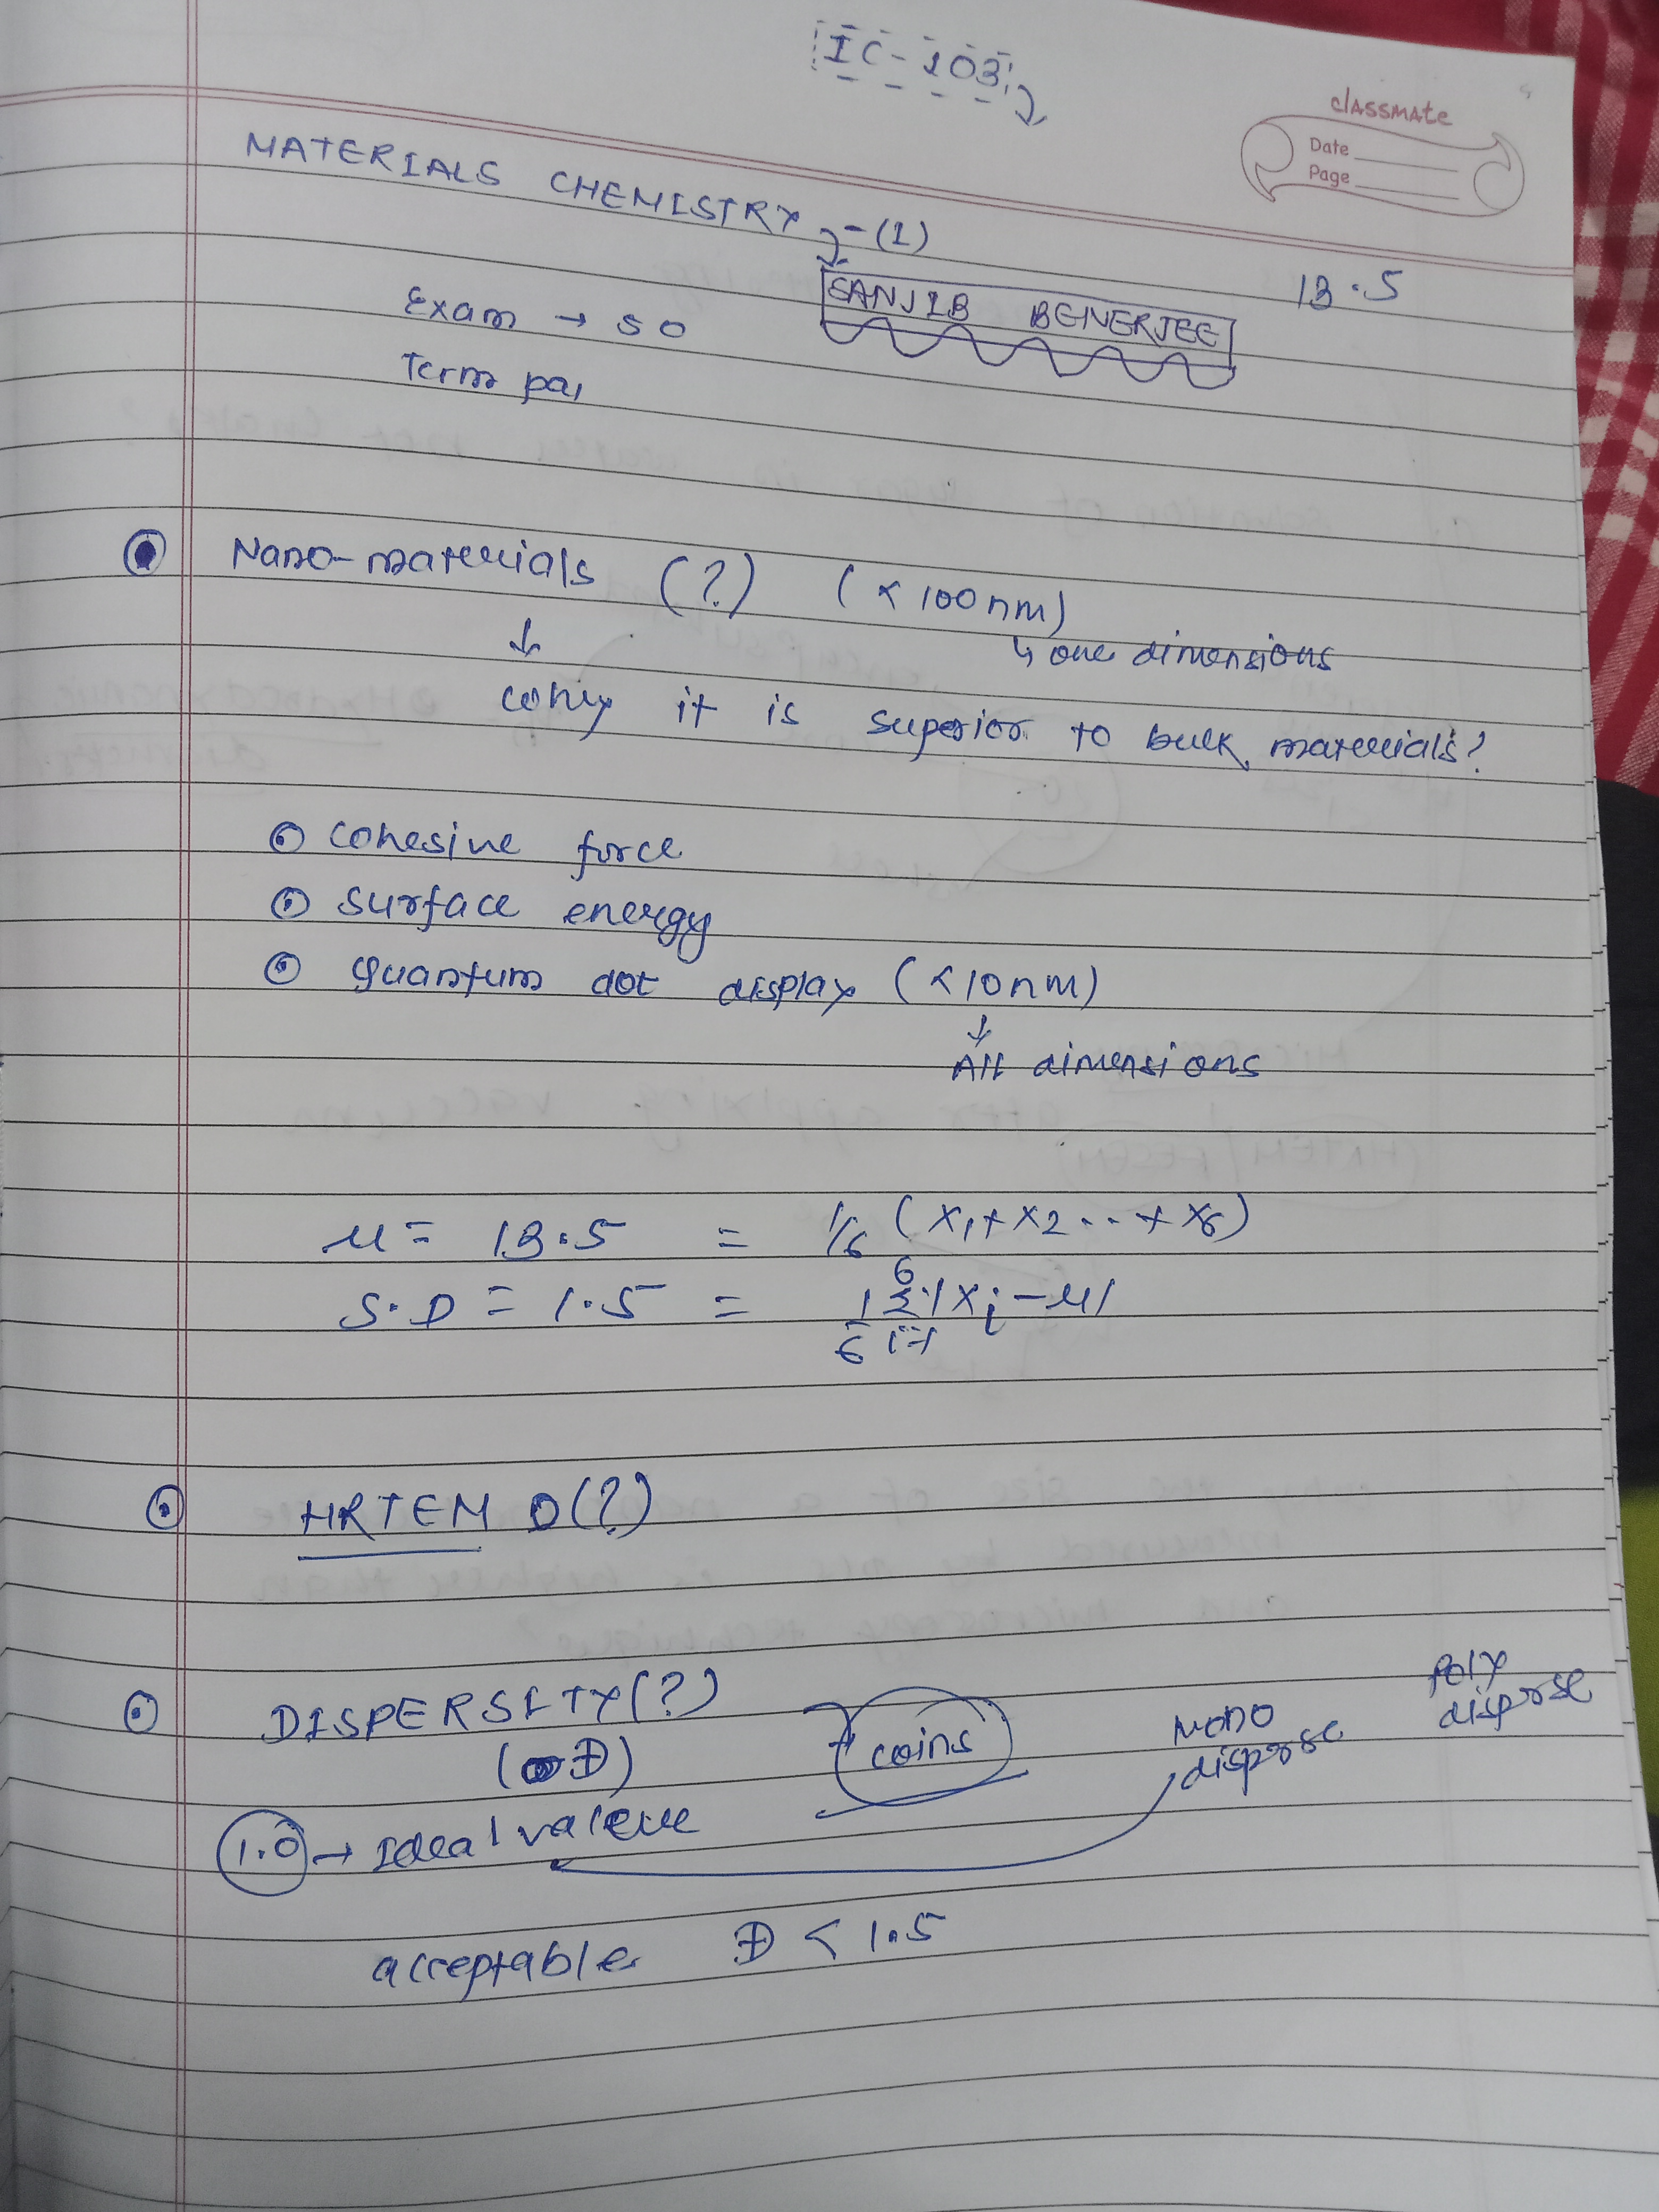 IC-103
classmate
Date
Page
MATERIALS CHEMISTRY -(1)
SANJIB BENERJEE
13.5
Exam → 50
Term pa
Nano-materials (?) (<100nm)
↳ one dimensions
↓
why it is superior to bulk materials?
cohesive force
surface energy
quantum dot display (<10nm)
↓
All dimensions
μ = 13.5 = 1/6 (x1+x2..+x6)
S.D = 1.5 = 1/6 6Σi=1 |xi-μ|
HRTEM D(?)
DISPERSITY(?)
(Đ)
coins
Mono
disperse
Poly
disperse
1.0 → Ideal value
acceptable Đ < 1.5